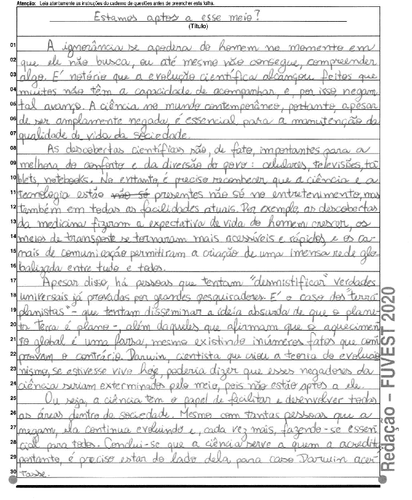 Atenção: Leia atentamente as instruções do caderno de questões antes de preencher esta folha.
Estamos aptos a esse meio?
(Título)
01 A ignorância se apodera do homem no momento em
02 que ele não busca, ou até mesmo não consegue, compreender
03 algo. É notório que a evolução científica alcançou feitos que
04 muitos não têm a capacidade de acompanhar, e, por isso negam
05 tal avanço. A ciência no mundo contemporâneo, portanto, apesar
06 de ser amplamente negada, é essencial para a manutenção da
07 qualidade de vida da sociedade.
08 As descobertas científicas são, de fato, importantes para a
09 melhora do conforto e da diversão do povo: celulares, televisões, ta
10 blets, notebooks. No entanto, é preciso reconhecer que a ciência e a
11 tecnologia estão não só presentes não só no entretenimento, mas
12 também em todas as facilidades atuais. Por exemplo, as descobertas
13 da medicina fizeram a expectativa de vida do homem crescer, os
14 meios de transporte se tornaram mais acessíveis e rápidos e os ca
15 nais de comunicação permitiram a criação de uma imensa rede glo
16 balizada entre tudo e todos.
17 Apesar disso, há pessoas que tentam "desmistificar" verdades
18 universais já provadas por grandes pesquisadores. É o caso dos "terra
19 planistas" - que tentam disseminar a ideia absurda de que o plane-
20 ta Terra é plano -, além daqueles que afirmam que o aquecimen
21 to global é uma farsa, mesmo existindo inúmeros fatos que com
22 provam o contrário. Darwin, cientista que criou a teoria do evolucio
23 nismo, se estivesse vivo hoje, poderia dizer que esses negadores da
24 ciência seriam exterminados pelo meio, pois não estão aptos a ele.
25 Ou seja, a ciência tem o papel de facilitar e desenvolver todas
26 as áreas dentro da sociedade. Mesmo com tantas pessoas que a
27 negam, ela continua evoluindo e, cada vez mais, fazendo-se essen
28 cial para todos. Conclui-se que a ciência serve a quem a acredita
29 portanto, é preciso estar do lado dela para caso Darwin acer
30 tasse.
Redação – FUVEST 2020